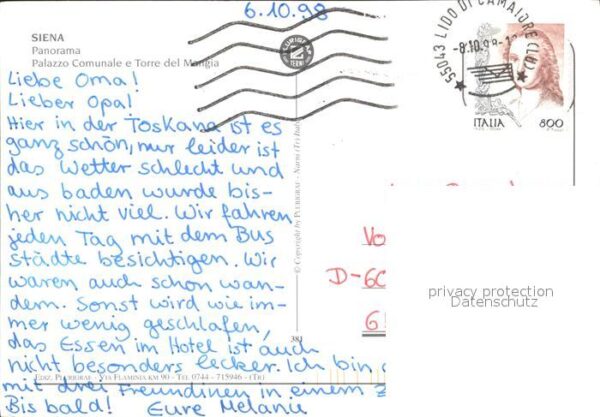 6.10.98
SIENA
Panorama
Palazzo Comunale e Torre del Mangia
Liebe Oma!
Lieber Opa!
Hier in der Toskana ist es
ganz schön, nur leider ist
das Wetter schlecht und
aus baden wurde bis-
her nicht viel. Wir fahren
jeden Tag mit dem Bus
städte besichtigen. Wir
waren auch schon wan-
dern. Sonst wird wie im-
mer wenig geschlafen,
das Essen im Hotel ist auch
nicht besonders lecker. Ich bin
mit drei Freundinen in einem
Bis bald! Eure Melanie
EDIZ. PLURIGRAF - VIA FLAMINIA KM 90 - TEL 0744 - 715946 - (TR)
© Copyright by PLURIGRAF - Narni (Tr) Italy
381
PLURIGRAF
TERNI
55043 LIDO DI CAMAIORE (LU)
-8.10.98-
ITALIA 800
Vo
D-60
6
privacy protection
Datenschutz